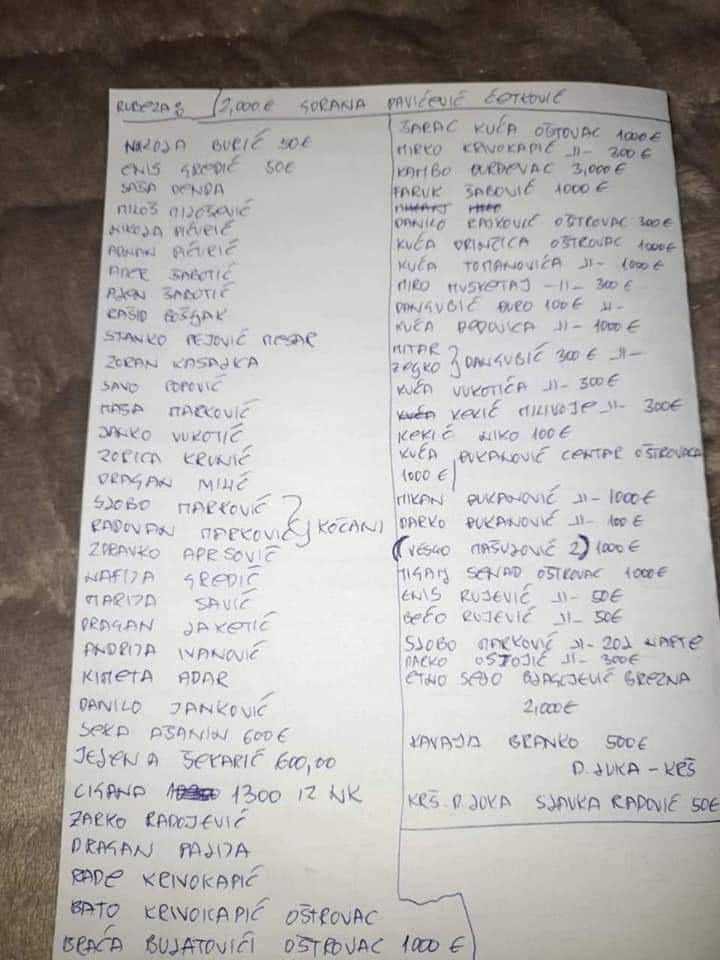 RUDEZA 8 2,000€ GORANA PAVIĆEVIĆ ĆETKOVIĆ
NIKOLJA BURIĆ 50€
ENIS GREDIĆ 50€
SAŠA DENDA
MILOŠ MILOŠEVIĆ
NIKOLA PIĆURIĆ
ADNAN PIĆURIĆ
AMER ŠABOTIĆ
AJLEN ŠABOTIĆ
RAŠID BOŠNJAK
STANKO PEJOVIĆ MESAR
ZORAN KASALICA
SAVO POPOVIĆ
MAŠA MARKOVIĆ
JANKO VUKOTIĆ
ZORICA KRUNIĆ
DRAGAN MILIĆ
SLOBO MARKOVIĆ
RADOVAN MARKOVIĆ KOČANI
ZDRAVKO APRCOVIĆ
NAFIJA GREDIĆ
MARIJA SAVIĆ
DRAGAN JAKETIĆ
ANDRIJA IVANOVIĆ
KIMETA ADAR
DANILO JANKOVIĆ
SEKA AŠANIN 600€
JELENA ŠEKARIĆ 600,00
CIGANA 1300 IZ NK
ŽARKO RADOJEVIĆ
DRAGAN PALIJA
RADE KRIVOKAPIĆ
BATO KRIVOKAPIĆ OŠTROVAC
BRAĆA BULATOVIĆI OŠTROVAC 1000€
ŠARAC KUĆA OŠTOVAC 1000€
MIRKO KRIVOKAPIĆ -II- 200€
KAMBO ĐURĐEVAC 3,000€
FARUK ŠABOVIĆ 1000€
DANILO RAJKOVIĆ OŠTROVAC 300€
KUĆA DRINČICA OŠTROVAC 1000€
KUĆA TOMANOVIĆA -II- 1000€
MIRO MUSKETAJ -II- 300€
DANGUBIĆ ĐURO 100€ -II-
KUĆA DEDOVICA -II- 1000€
MITAR
ZELJKO DANGUBIĆ 300€ -II-
KUĆA VUKOTIĆA -II- 300€
KEKIĆ MILIVOJE -II- 300€
KEKIĆ NIKO 100€
KUĆA ĐUKANOVIĆ CENTAR OŠTROVACA
1000€
MIKAN ĐUKANOVIĆ -II- 1000€
DARKO ĐUKANOVIĆ -II- 100€
(VESKO MAŠULOVIĆ 2) 1000€
SENAD OŠTROVAC 1000€
ENIS RUJEVIĆ -II- 50€
BEĆO RUJEVIĆ -II- 50€
SLOBO MARKOVIĆ -II- 20L NAFTE
DARKO OSTOJIĆ -II- 300€
ETNO SELO BLAGOJEVIĆ BREZNA
2,000€
KAVAJA BRANKO 500€
D. LUKA - KRŠ
KRŠ. D. LUKA SLAVKA RADOVIĆ 50€